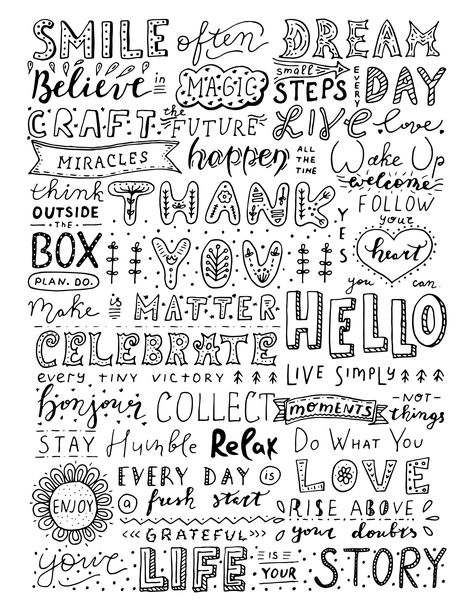 SMILE often DREAM
Believe in MAGIC small STEPS EVERY DAY
CRAFT the FUTURE LIVE love
MIRACLES happen ALL THE TIME Wake Up
welcome
think OUTSIDE THE BOX
THANK YOU
YES
FOLLOW your heart
PLAN. DO.
you can
Make it MATTER HELLO
CELEBRATE
every TINY VICTORY LIVE SIMPLY
bonjour COLLECT MOMENTS -NOT- things
STAY Humble Relax Do What You LOVE
ENJOY EVERY DAY IS a fresh start
RISE ABOVE your doubts
GRATEFUL
your LIFE IS YOUR STORY